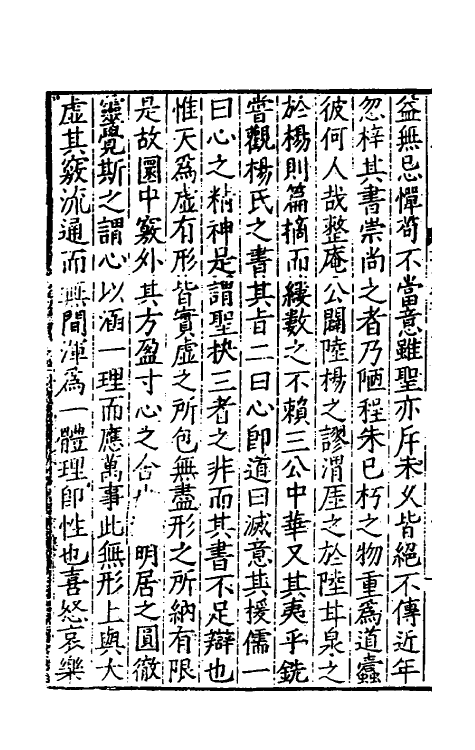 益無忌憚苟不當意雖聖亦斥未乆皆絕不傳近年
忽梓其書崇尚之者乃陋程朱已朽之物重爲道蠹
彼何人哉整庵公闢陸楊之謬渭厓之於陸甘泉之
於楊則篇摘而縷數之不賴三公中華又其夷乎銑
嘗觀楊氏之書其㫖二曰心卽道曰滅意其援儒一
曰心之精神是謂聖抉三者之非而其書不足辯也
惟天爲虛有形皆實虛之所包無盡形之所納有限
是故圜中竅外其方盈寸心之合也 明居之圓徹
靈覺斯之謂心以涵一理而應萬事此無形上與大
虛其竅流通而無間渾爲一體理卽性也喜怒哀樂